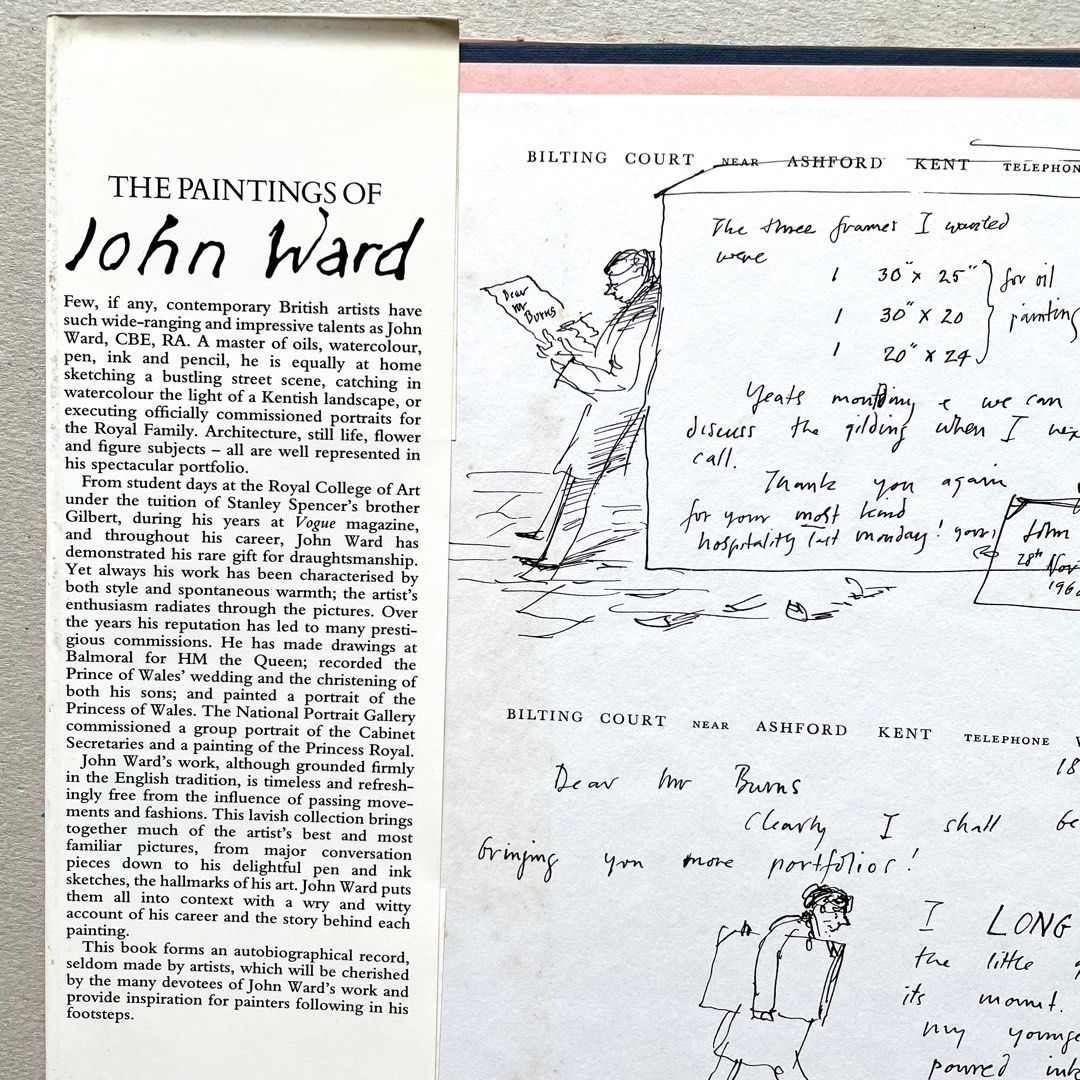 THE PAINTINGS OF
John Ward
Few, if any, contemporary British artists have
such wide-ranging and impressive talents as John
Ward, CBE, RA. A master of oils, watercolour,
pen, ink and pencil, he is equally at home
sketching a bustling street scene, catching in
watercolour the light of a Kentish landscape, or
executing officially commissioned portraits for
the Royal Family. Architecture, still life, flower
and figure subjects – all are well represented in
his spectacular portfolio.
From student days at the Royal College of Art
under the tuition of Stanley Spencer's brother
Gilbert, during his years at Vogue magazine,
and throughout his career, John Ward has
demonstrated his rare gift for draughtsmanship.
Yet always his work has been characterised by
both style and spontaneous warmth; the artist's
enthusiasm radiates through the pictures. Over
the years his reputation has led to many presti-
gious commissions. He has made drawings at
Balmoral for HM the Queen; recorded the
Prince of Wales' wedding and the christening of
both his sons; and painted a portrait of the
Princess of Wales. The National Portrait Gallery
commissioned a group portrait of the Cabinet
Secretaries and a painting of the Princess Royal.
John Ward's work, although grounded firmly
in the English tradition, is timeless and refresh-
ingly free from the influence of passing move-
ments and fashions. This lavish collection brings
together much of the artist's best and most
familiar pictures, from major conversation
pieces down to his delightful pen and ink
sketches, the hallmarks of his art. John Ward puts
them all into context with a wry and witty
account of his career and the story behind each
painting.
This book forms an autobiographical record,
seldom made by artists, which will be cherished
by the many devotees of John Ward's work and
provide inspiration for painters following in his
footsteps.
BILTING COURT NEAR ASHFORD KENT TELEPHON
Dear
Mr
Burns
The three frames I wanted
were
1 30" x 25" for oil
1 30" x 20 painting
1 20" x 24
Yeats e we can
discuss the gilding when I nex
call.
Thank you again
for your most kind
hospitality last monday! yours
John
28th Nov
196
BILTING COURT NEAR ASHFORD KENT TELEPHONE
18
Dear Mr Burns
Clearly I shall be
bringing you more portfolios!
I LONG
the little
its
my younge
poured ink